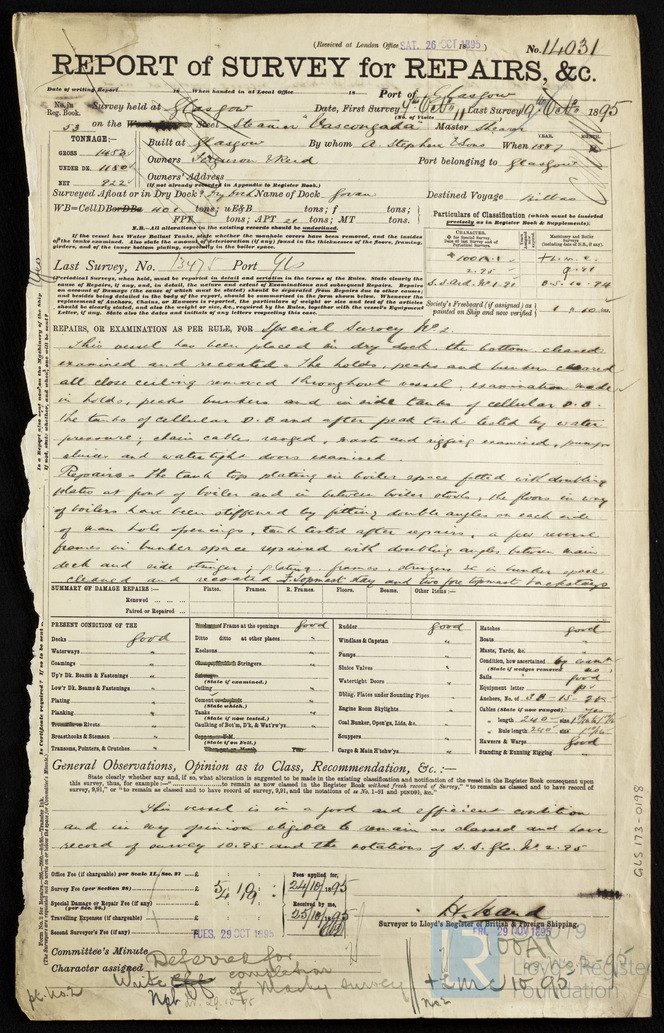 (Received at London Office SAT. 26 OCT 1895)
No. 14031
REPORT of SURVEY for REPAIRS, &c.
Date of writing Report 18 When handed in at Local Office 18 Port of Glasgow
No. in Reg. Book. Survey held at Glasgow Date, First Survey Last Survey 1895
(No. of Visits
53 on the Steel Steamer "Vascongada" Master
TONNAGE:— Built at Glasgow By whom A. Stephen & Sons When 1887
YEAR. MONTH.
GROSS 1452 Owners Ferguson & Reid Port belonging to Glasgow
UNDER DK. 1180 Owners' Address
NET 922 (If not already recorded in Appendix to Register Book.)
Surveyed Afloat or in Dry Dock? Dry Dock Name of Dock Govan Destined Voyage Bilbao
WB=CellDB or DBa tons; uE&B tons; f tons;
FPT tons; APT tons; MT tons.
N.B.—All alterations in the existing records should be underlined.
If the vessel has Water Ballast Tanks, state whether the manhole covers have been removed, and the insides
of the tanks examined. Also state the amount of deterioration (if any) found in the thicknesses of the floors, framing,
and of the inner bottom plating, especially in the boiler space.
Particulars of Classification (which must be inserted
precisely as in Register Book & Supplements).
CHARACTER.
Machinery and Boiler Surveys
(including date of N.B., if any).
100A1 + L.M.C.
2.95 9.91
B.S. 10.94
Society's Freeboard (if assigned) as
painted on Ship and now verified
Last Survey, No. 13475 Port Gls
Periodical Surveys, when held, must be reported in detail and seriatim in the terms of the Rules. State clearly the
cause of Repairs, if any, and, in detail, the nature and extent of Examinations and subsequent Repairs. Repairs
on account of Damage (the cause of which must be stated) should be separated from Repairs due to other causes,
and besides being detailed in the body of the report, should be summarized in the form shewn below. Whenever the
replacement of Anchors, Chains, or Hawsers is reported, the particulars of weight or size and test of the articles
should be clearly stated, and also the weight or size, &c., required by the Rules, together with the vessel's Equipment
Letter, if any. State also the dates and initials of any letters respecting this case.
REPAIRS, OR EXAMINATION AS PER RULE, FOR Special Survey No 2.
This vessel has been placed in dry dock the bottom cleaned
examined and recoated. The holds, peaks and bunkers cleared
all close ceiling removed throughout vessel, examination made
in holds, peaks bunkers and in side tanks of cellular D.B.
The tanks of cellular D.B and after peak tank tested by water
pressure; chain cables ranged, masts and rigging examined, pumps
sluices and watertight doors examined.
Repairs:- The tank tops plating in boiler space fitted with doubling
plates at front of boiler and in between boiler stools, the floors in way
of boilers have been stiffened by fitting double angles on each side
of man hole openings, tank tested after repairs, a few reverse
frames in bunker space repaired with doubling angles between main
deck and side stringer; plating, frames, stringers &c in bunker space
cleaned and recoated. F. topmast stay and two fore topmast backstays
SUMMARY OF DAMAGE REPAIRS:— Plates. Frames. R. Frames. Floors. Beams. Other Items:—
Renewed
Faired or Repaired
PRESENT CONDITION OF THE
Decks good
Waterways "
Coamings "
Up'r Dk. Beams & Fastenings "
Low'r Dk. Beams & Fastenings "
Plating "
Planking
Rivets "
Breasthooks & Stemson "
Transoms, Pointers, & Crutches "
Frame at the openings good
Ditto ditto at other places "
Keelsons "
Stringers "
(State if examined.)
Ceiling "
Cement
(State which.)
Tanks "
(State if now tested.)
Caulking of Bot'm, D'k, & Wat'rw'ys "
(State if on Felt.)
Rudder good
Windlass & Capstan "
Pumps "
Sluice Valves "
Watertight Doors "
Dblng. Plates under Sounding Pipes "
Engine Room Skylights "
Coal Bunker, Open'gs, Lids, &c. "
Scuppers "
Cargo & Main H'tchw'ys "
Hatches good
Boats "
Masts, Yards, &c. "
Condition, how ascertained
(State if wedges removed no)
Sails good
Equipment letter
Anchors, No. of 3B-1S-2K
Cables (State if now ranged) yes
" length 240 size
" Rule length 240 size
Hawsers & Warps good
Standing & Running Rigging "
General Observations, Opinion as to Class, Recommendation, &c.:—
State clearly whether any and, if so, what alteration is suggested to be made in the existing classification and notification of the vessel in the Register Book consequent upon
this survey, thus, for example—" to remain as now classed in the Register Book without fresh record of Survey," "to remain as classed and to have record of
survey, 9,91," or "to remain as classed and to have record of survey, 9,91, and the notations of
This vessel is in a good and efficient condition
and in my opinion eligible to remain as classed and have
record of survey 10.95 and the notations of S.S. Gls. No 2.95
Office Fee (if chargeable) per Scale II., Sec. 27
Survey Fee (per Section 28) £ 5 4
Special Damage or Repair Fee (if any) (per Sec. 28.)
Travelling Expenses (if chargeable)
Second Surveyor's Fee (if any)
Fees applied for, 24/10/1895
Received by me, 25/10/1895
Surveyor to Lloyd's Register of British & Foreign Shipping.
TUES. 29 OCT 1895
FRI. 29 NOV 1895
Committee's Minute
Character assigned
Deferred for
completion
of Machy survey
Write
100A1
+ LMC 10.95
No. 2
GLS 173-0198
Lloyd's Register
Foundation